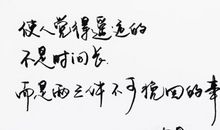 使人觉得遥远的
不是时间长
而是两三件不可挽回的事